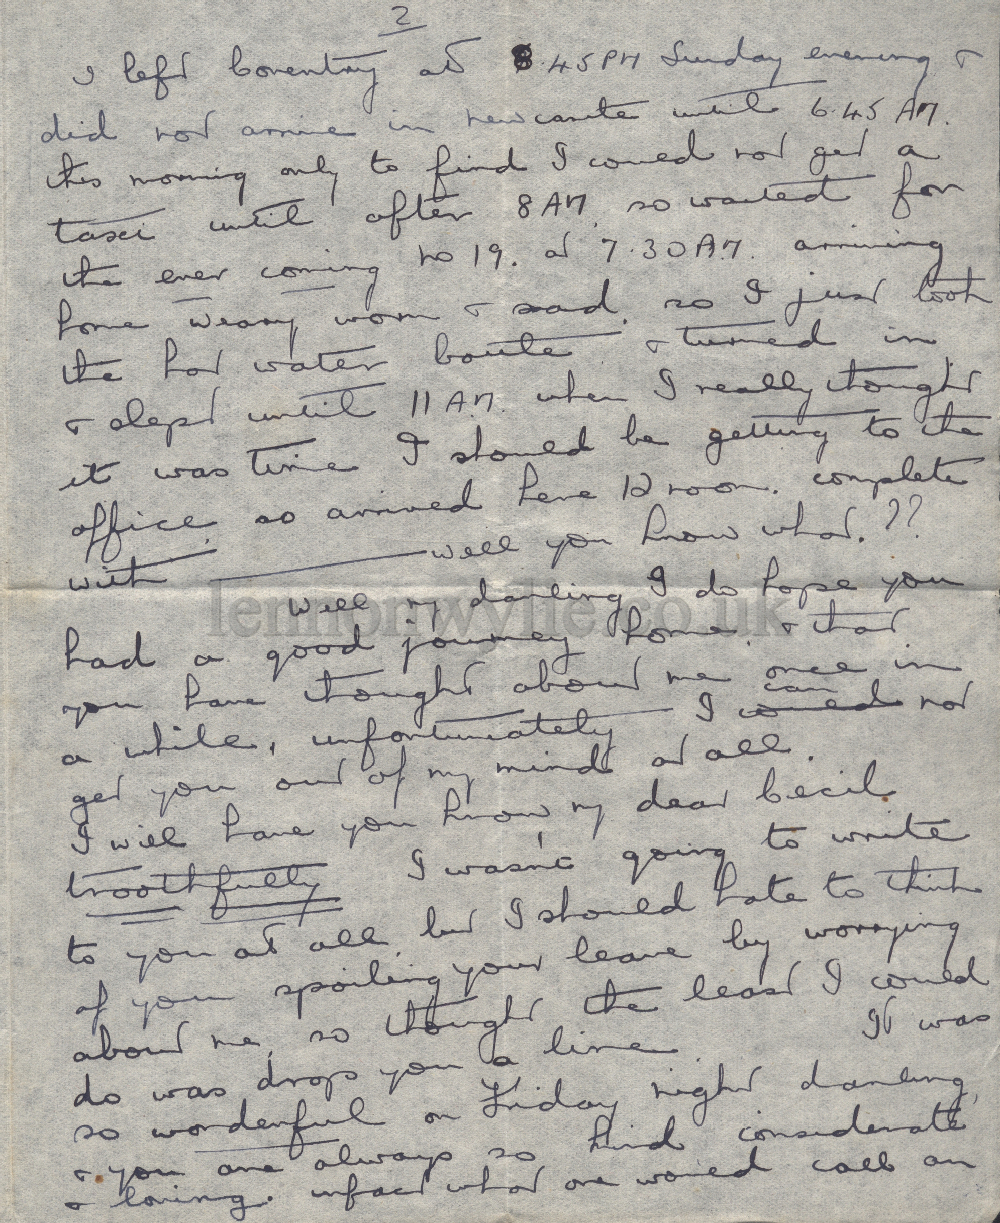 2
I left Coventry at 8.45PM Sunday evening &
did not arrive in newcastle until 6.45 AM.
this morning only to find I could not get a
taxi until after 8 AM, so waited for
the ever coming no 19. at 7.30AM. arriving
home weary worn & sad, so I just took
the hot water bottle & turned in,
& slept until 11 AM. when I really thought
it was time I should be getting to the
office so arrived here 12 noon. complete
with ——— well you know what.??
Well my darling I do hope you
had a good journey home. & that
you have thought about me once in
a while, unfortunately I can not
get you out of my mind at all.
I will have you know my dear Cecil
troothfully I wasn't going to write
to you at all, but I should hate to think
of your spoiling your leave by worrying
about me, so thought the least I could
do was drops you a line. It was
so wonderful on Friday night darling,
& you are always so kind considerate
& loving. infact what one would call an
lennonwylie.co.uk